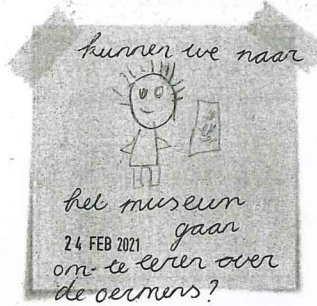 kunnen we naar
het museum
gaan
24 FEB 2021
om te leren over
de oermens?